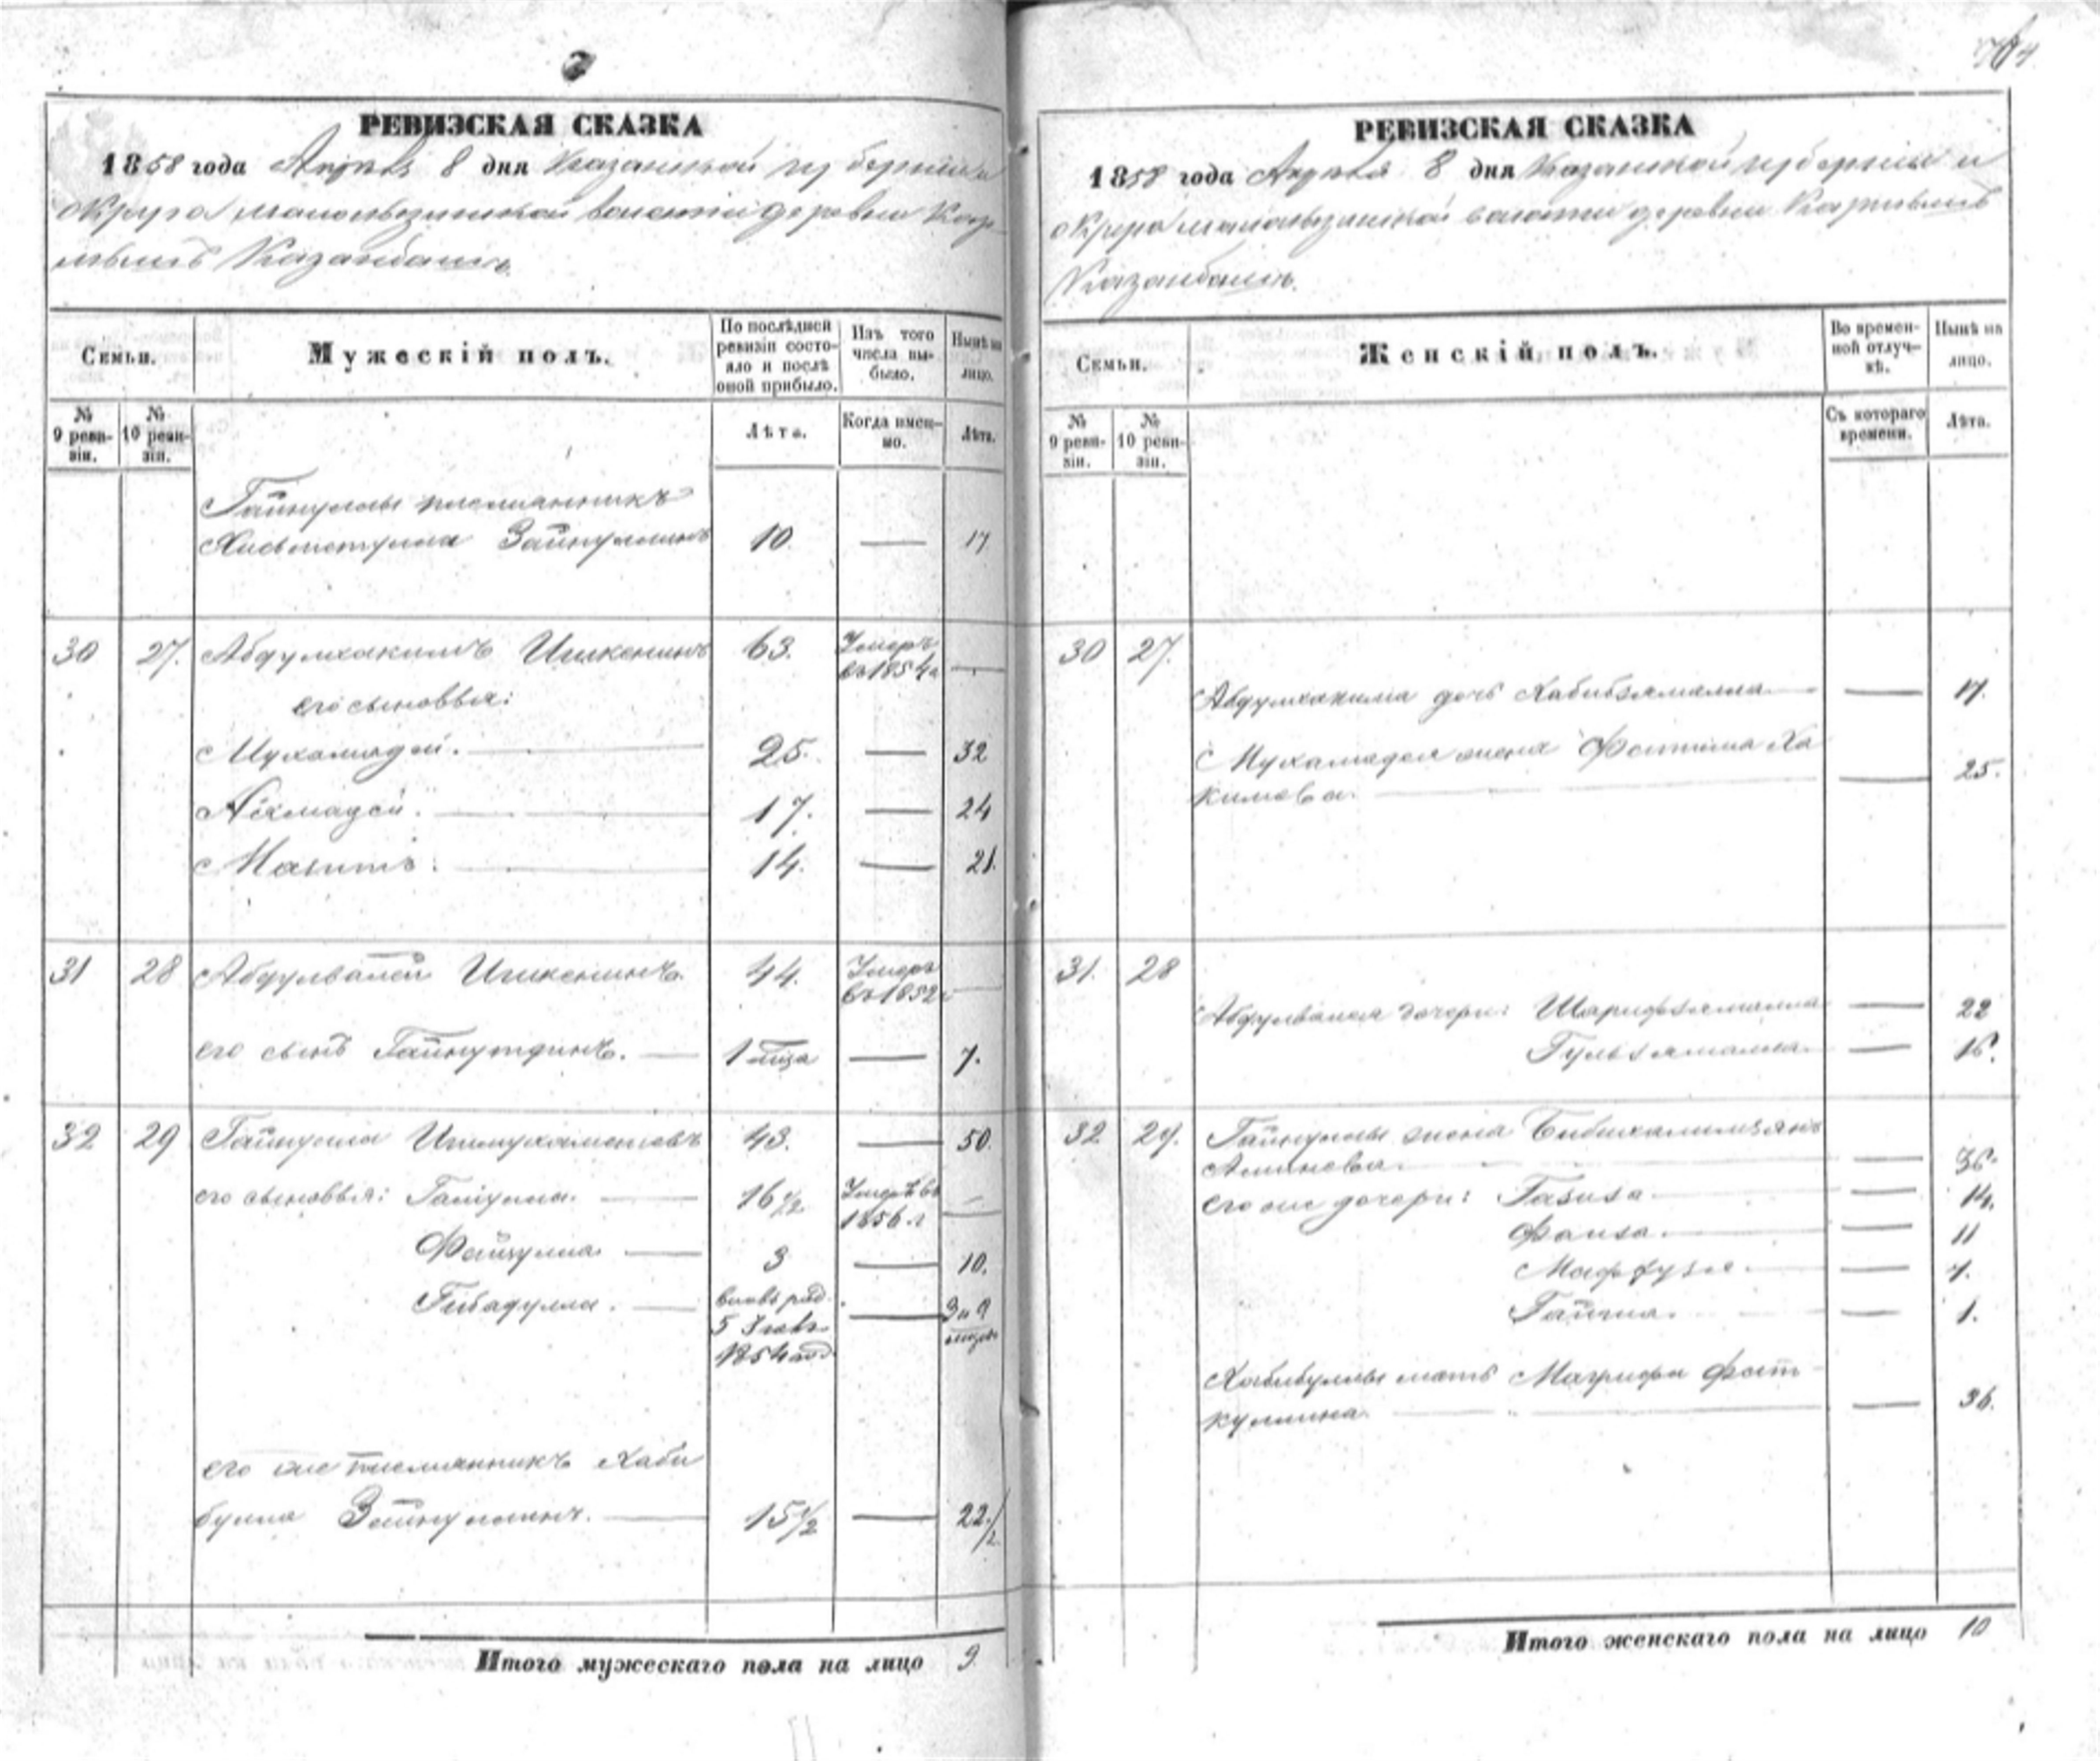 РЕВИЗСКАЯ СКАЗКА
1858 года Апреля 8 дня Казанской губернии и
округа волости деревни Кар-
Казанбашъ
Семьи.
Мужескій полъ.
По послѣдней ревизіи состояло и послѣ оной прибыло.
Изъ того числа выбыло.
Нынѣ на лицо.
№ 9 ревизіи.
№ 10 ревизіи.
Лѣта.
Когда именно.
Лѣта.
Гайнуллы племянникъ
Зайнуллинъ 10 — 17
30 27. Абдулхакимъ Ишкенинъ 63. Умеръ въ 1854 —
его сыновья:
Мухамадей. — 25. — 32
Ахмадей. — 17. — 24
Магитъ. — 14. — 21.
31 28 Абдулвалей Ишкенинъ. 44. Умеръ въ 1852 —
его сынъ Гайнутдинъ. — 1 — 7.
32 29 Гайнулла Ишмухаметевъ 43. — 50.
его сыновья: — 16 1/2 Умеръ въ 1856 г —
Файзулла — 3 — 10.
Гибадулла. — вновь рожд. — 3 и 9
5
1854 год
его же племянникъ Хаби
булла Зайнуллинъ. — 15 1/2 — 22 1/2
Итого мужескаго пола на лицо 9
РЕВИЗСКАЯ СКАЗКА
1858 года Апреля 8 дня Казанской губерніи и
округа волости деревни
Казанбашъ.
Семьи.
Женскій полъ.
Во временной отлучкѣ.
Нынѣ на лицо.
№ 9 ревизіи.
№ 10 ревизіи.
Съ котораго времени.
Лѣта.
30 27.
Абдулхакима дочь Хабибзямалла — — 17.
Мухамадея жена Фатима Ха
кимова. — — 25.
31. 28
Абдулвалея дочери: Шарифзямалла — 22
Гульзямалла — — 16.
32 29. Гайнуллы жена
Аминева. — — 36.
его же дочери: Газиза — — 14.
Фаиза. — — 11
Мафузя. — — 7.
— — 1.
Хабибуллы мать Магрифа Фат-
куллина. — — 36.
Итого женскаго пола на лицо 10